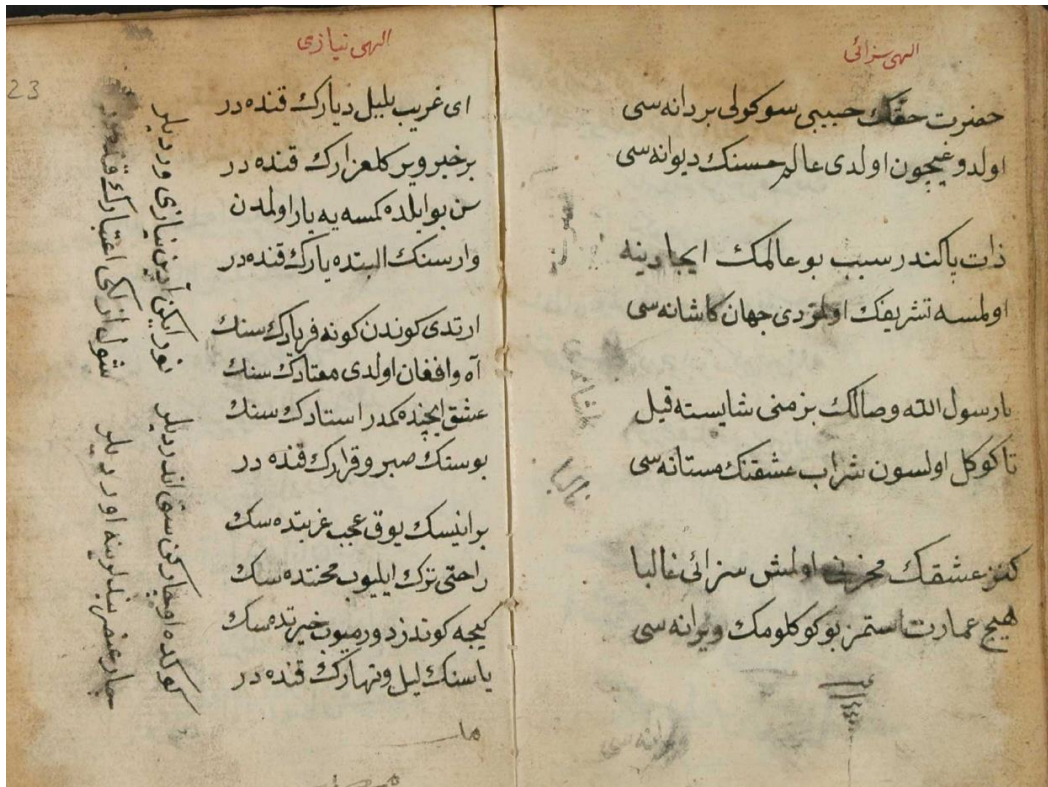 الهی سزائی
حضرت حقك حبیبی سوكولی بردانه سی
اولدوغیچون اولدی عالم حسنك دیوانه سی
ذات پاكندر سبب بو عالمك ایجادینه
اولمسه تشریفك اولمزدی جهان كاشانه سی
یارسول الله وصالك بزمنی شایسته قیل
تا كوكل اولسون شراب عشقنك مستانه سی
كنز عشقك مخزنی اولمش سزائی غالبا
هیچ عمارت استمز بو كوكلومك ویرانه سی
غالبا
وانه سی
23
الهی نیازی
ای غریب بلبل دیارك قنده در
بر خبر ویر كلعزارك قنده در
سن بو ایلده كمسه یه یار اولمدن
وار سنك البتده یارك قنده در
ارتدی كوندن كونه فریادك سنك
آه و افغان اولدی معتادك سنك
عشق ایچنده كمدر استادك سنك
بو سنك صبر و قرارك قنده در
بر انیسك یوق عجب غربتده سك
راحتی ترك ایلیوب محنتده سك
كیجه كوندز دورمیوب حیرتده سك
یا سنك لیل و نهارك قنده در
كوكده اوچاركن سنی اندردیلر
چار عنصر بندلرینه اوردیلر
نور ایكن آدین نیازی وردیلر
شول ازلكی اعتبارك قنده در